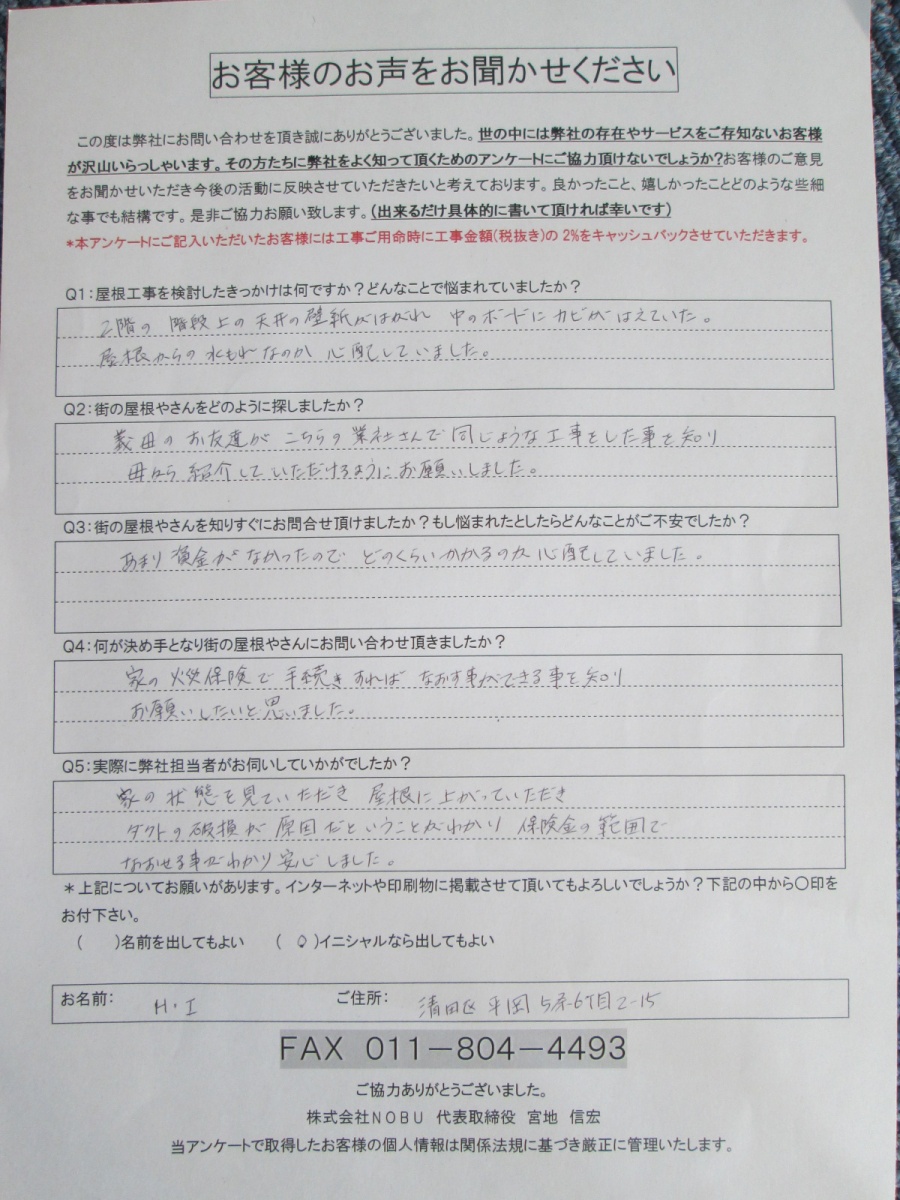 お客様のお声をお聞かせください
この度は弊社にお問い合わせを頂き誠にありがとうございました。世の中には弊社の存在やサービスをご存知ないお客様
が沢山いらっしゃいます。その方たちに弊社をよく知って頂くためのアンケートにご協力頂けないでしょうか?お客様のご意見
をお聞かせいただき今後の活動に反映させていただきたいと考えております。良かったこと、嬉しかったことどのような些細
な事でも結構です。是非ご協力お願い致します。(出来るだけ具体的に書いて頂ければ幸いです)
*本アンケートにご記入いただいたお客様には工事ご用命時に工事金額(税抜き)の 2%をキャッシュバックさせていただきます。
Q1:屋根工事を検討したきっかけは何ですか?どんなことで悩まれていましたか?
2階の 階段上の天井の壁紙がはがれ 中のボードにカビがはえていた。
屋根からの水もれなのか 心配していました。
Q2:街の屋根やさんをどのように探しましたか?
義母のお友達がこちらの業社さんで同じような工事をした事を知り
母から紹介していただけるようにお願いしました。
Q3:街の屋根やさんを知りすぐにお問合せ頂けましたか?もし悩まれたとしたらどんなことがご不安でしたか?
あまり資金がなかったので どのくらいかかるのか心配していました。
Q4:何が決め手となり街の屋根やさんにお問い合わせ頂きましたか?
家の火災保険で手続きすれば なおす事ができる事を知り
お願いしたいと思いました。
Q5:実際に弊社担当者がお伺いしていかがでしたか?
家の状態を見ていただき 屋根に上がっていただき
ダクトの破損が原因だということがわかり 保険金の範囲で
なおせる事がわかり安心しました。
*上記についてお願いがあります。インターネットや印刷物に掲載させて頂いてもよろしいでしょうか?下記の中から〇印を
お付下さい。
( )名前を出してもよい ( 〇 )イニシャルなら出してもよい
お名前: H・I ご住所: 清田区平岡5条6丁目2-15
FAX 011-804-4493
ご協力ありがとうございました。
株式会社NOBU 代表取締役 宮地 信宏
当アンケートで取得したお客様の個人情報は関係法規に基づき厳正に管理いたします。